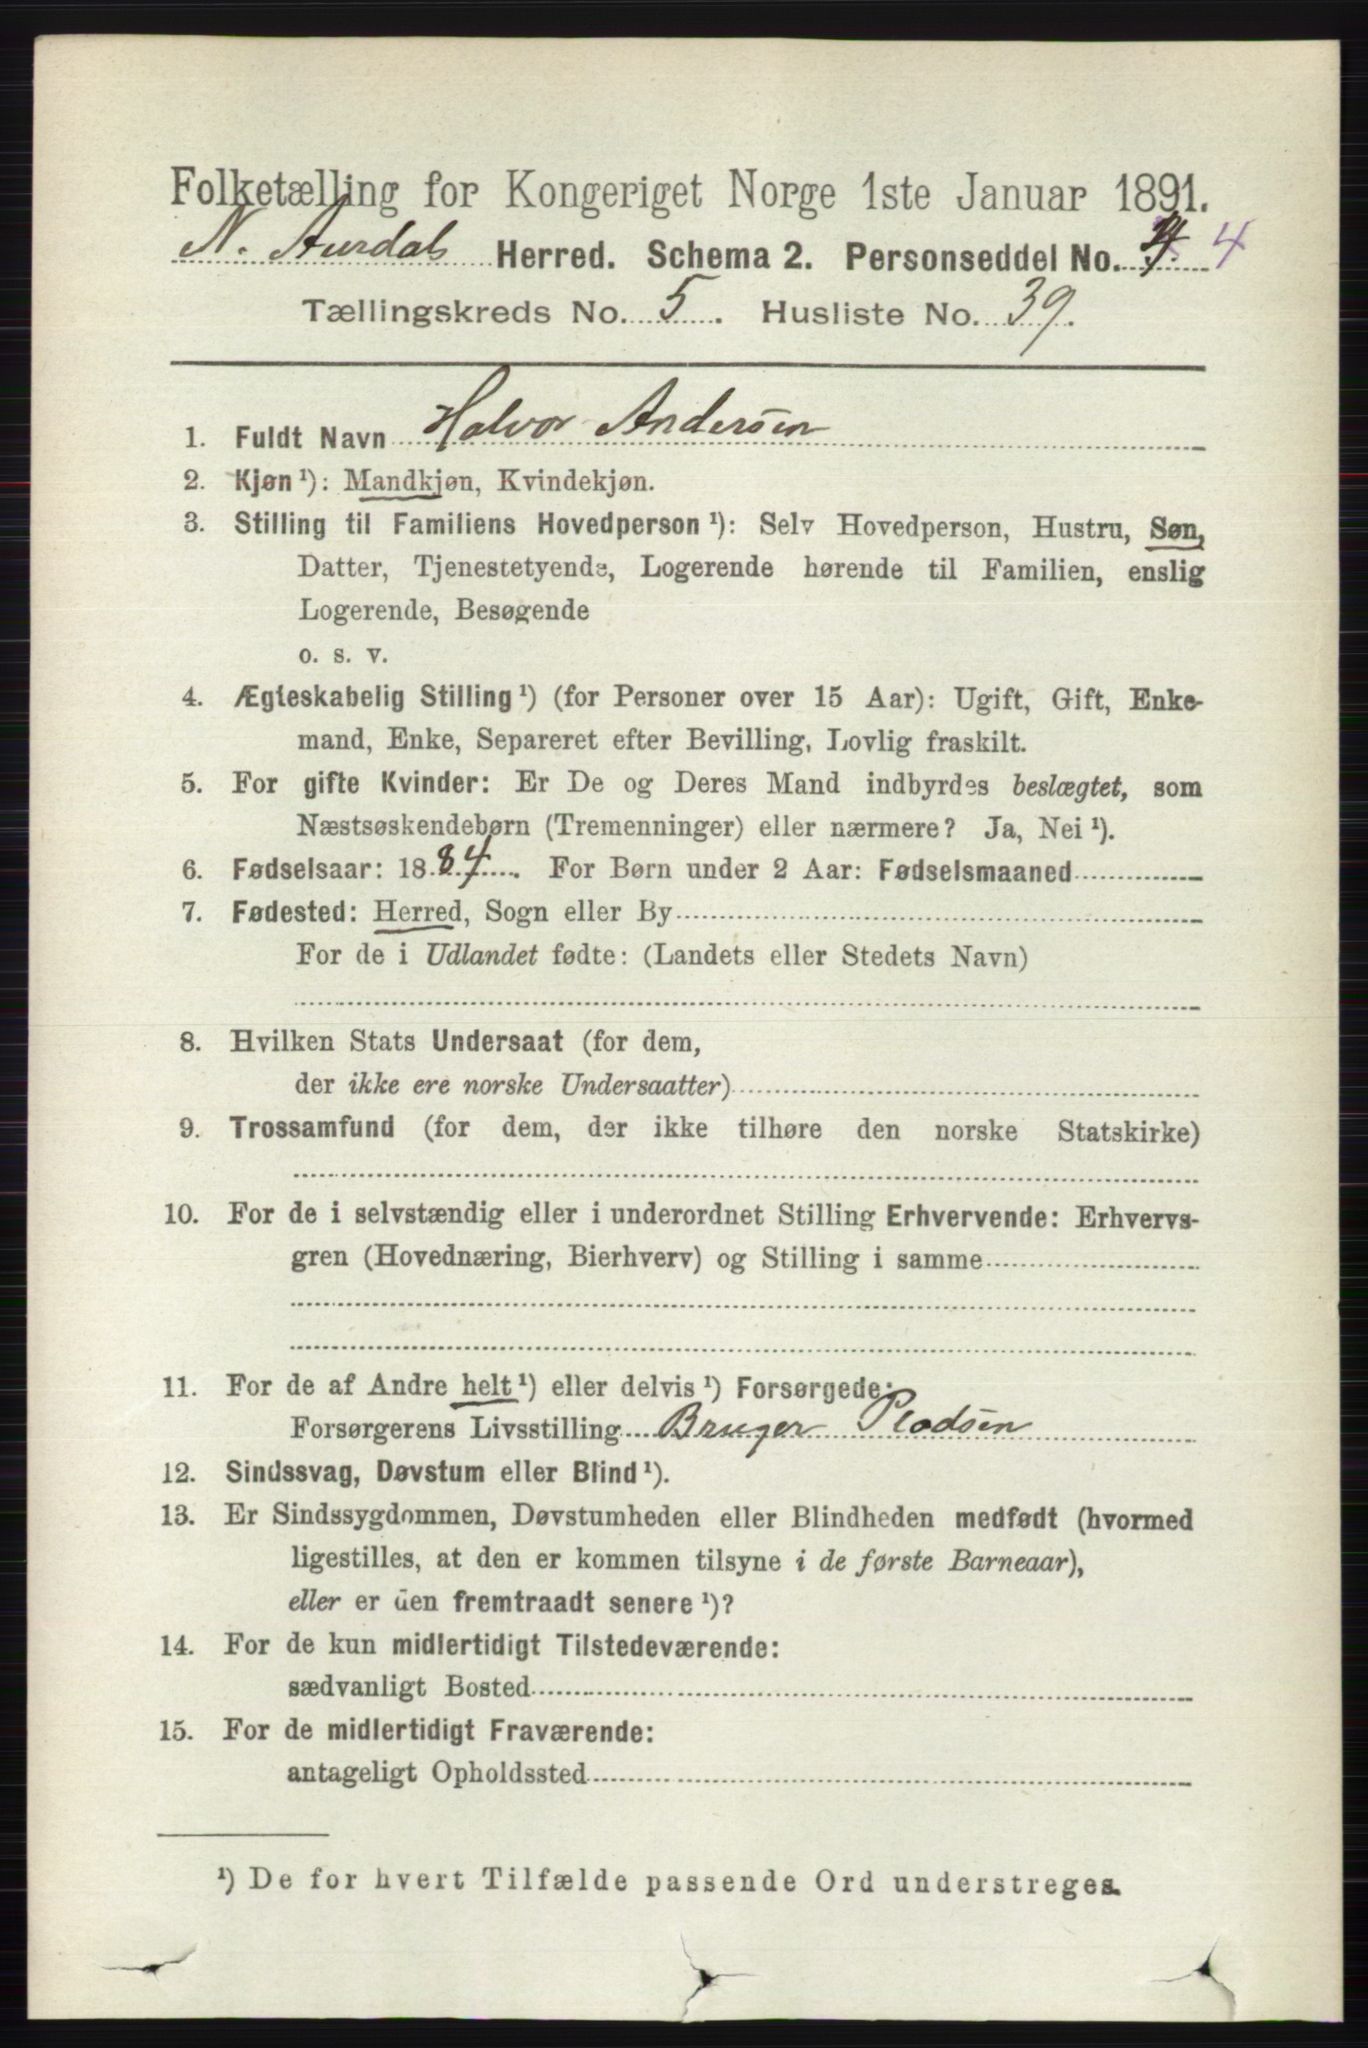 Folketælling for Kongeriget Norge 1ste Januar 1891.
N. Aurdal Herred. Schema 2. Personseddel No. 4
Tællingskreds No. 5. Husliste No. 39.
1. Fuldt Navn Halvor Andersen
2. Kjøn ¹): Mandkjøn, Kvindekjøn.
3. Stilling til Familiens Hovedperson ¹): Selv Hovedperson, Hustru, Søn,
Datter, Tjenestetyende, Logerende hørende til Familien, enslig
Logerende, Besøgende
o. s. v.
4. Ægteskabelig Stilling ¹) (for Personer over 15 Aar): Ugift, Gift, Enke-
mand, Enke, Separeret efter Bevilling, Lovlig fraskilt.
5. For gifte Kvinder: Er De og Deres Mand indbyrdes beslægtet, som
Næstsøskendebørn (Tremenninger) eller nærmere? Ja, Nei ¹).
6. Fødselsaar: 1884. For Børn under 2 Aar: Fødselsmaaned
7. Fødested: Herred, Sogn eller By
For de i Udlandet fødte: (Landets eller Stedets Navn)
8. Hvilken Stats Undersaat (for dem,
der ikke ere norske Undersaatter)
9. Trossamfund (for dem, der ikke tilhøre den norske Statskirke)
10. For de i selvstændig eller i underordnet Stilling Erhvervende: Erhvervs-
gren (Hovednæring, Bierhverv) og Stilling i samme
11. For de af Andre helt ¹) eller delvis ¹) Forsørgede:
Forsørgerens Livsstilling Bruger Pladsen
12. Sindssvag, Døvstum eller Blind ¹).
13. Er Sindssygdommen, Døvstumheden eller Blindheden medfødt (hvormed
ligestilles, at den er kommen tilsyne i de første Barneaar),
eller er den fremtraadt senere ¹)?
14. For de kun midlertidigt Tilstedeværende:
sædvanligt Bosted
15. For de midlertidigt Fraværende:
antageligt Opholdssted
¹) De for hvert Tilfælde passende Ord understreges.